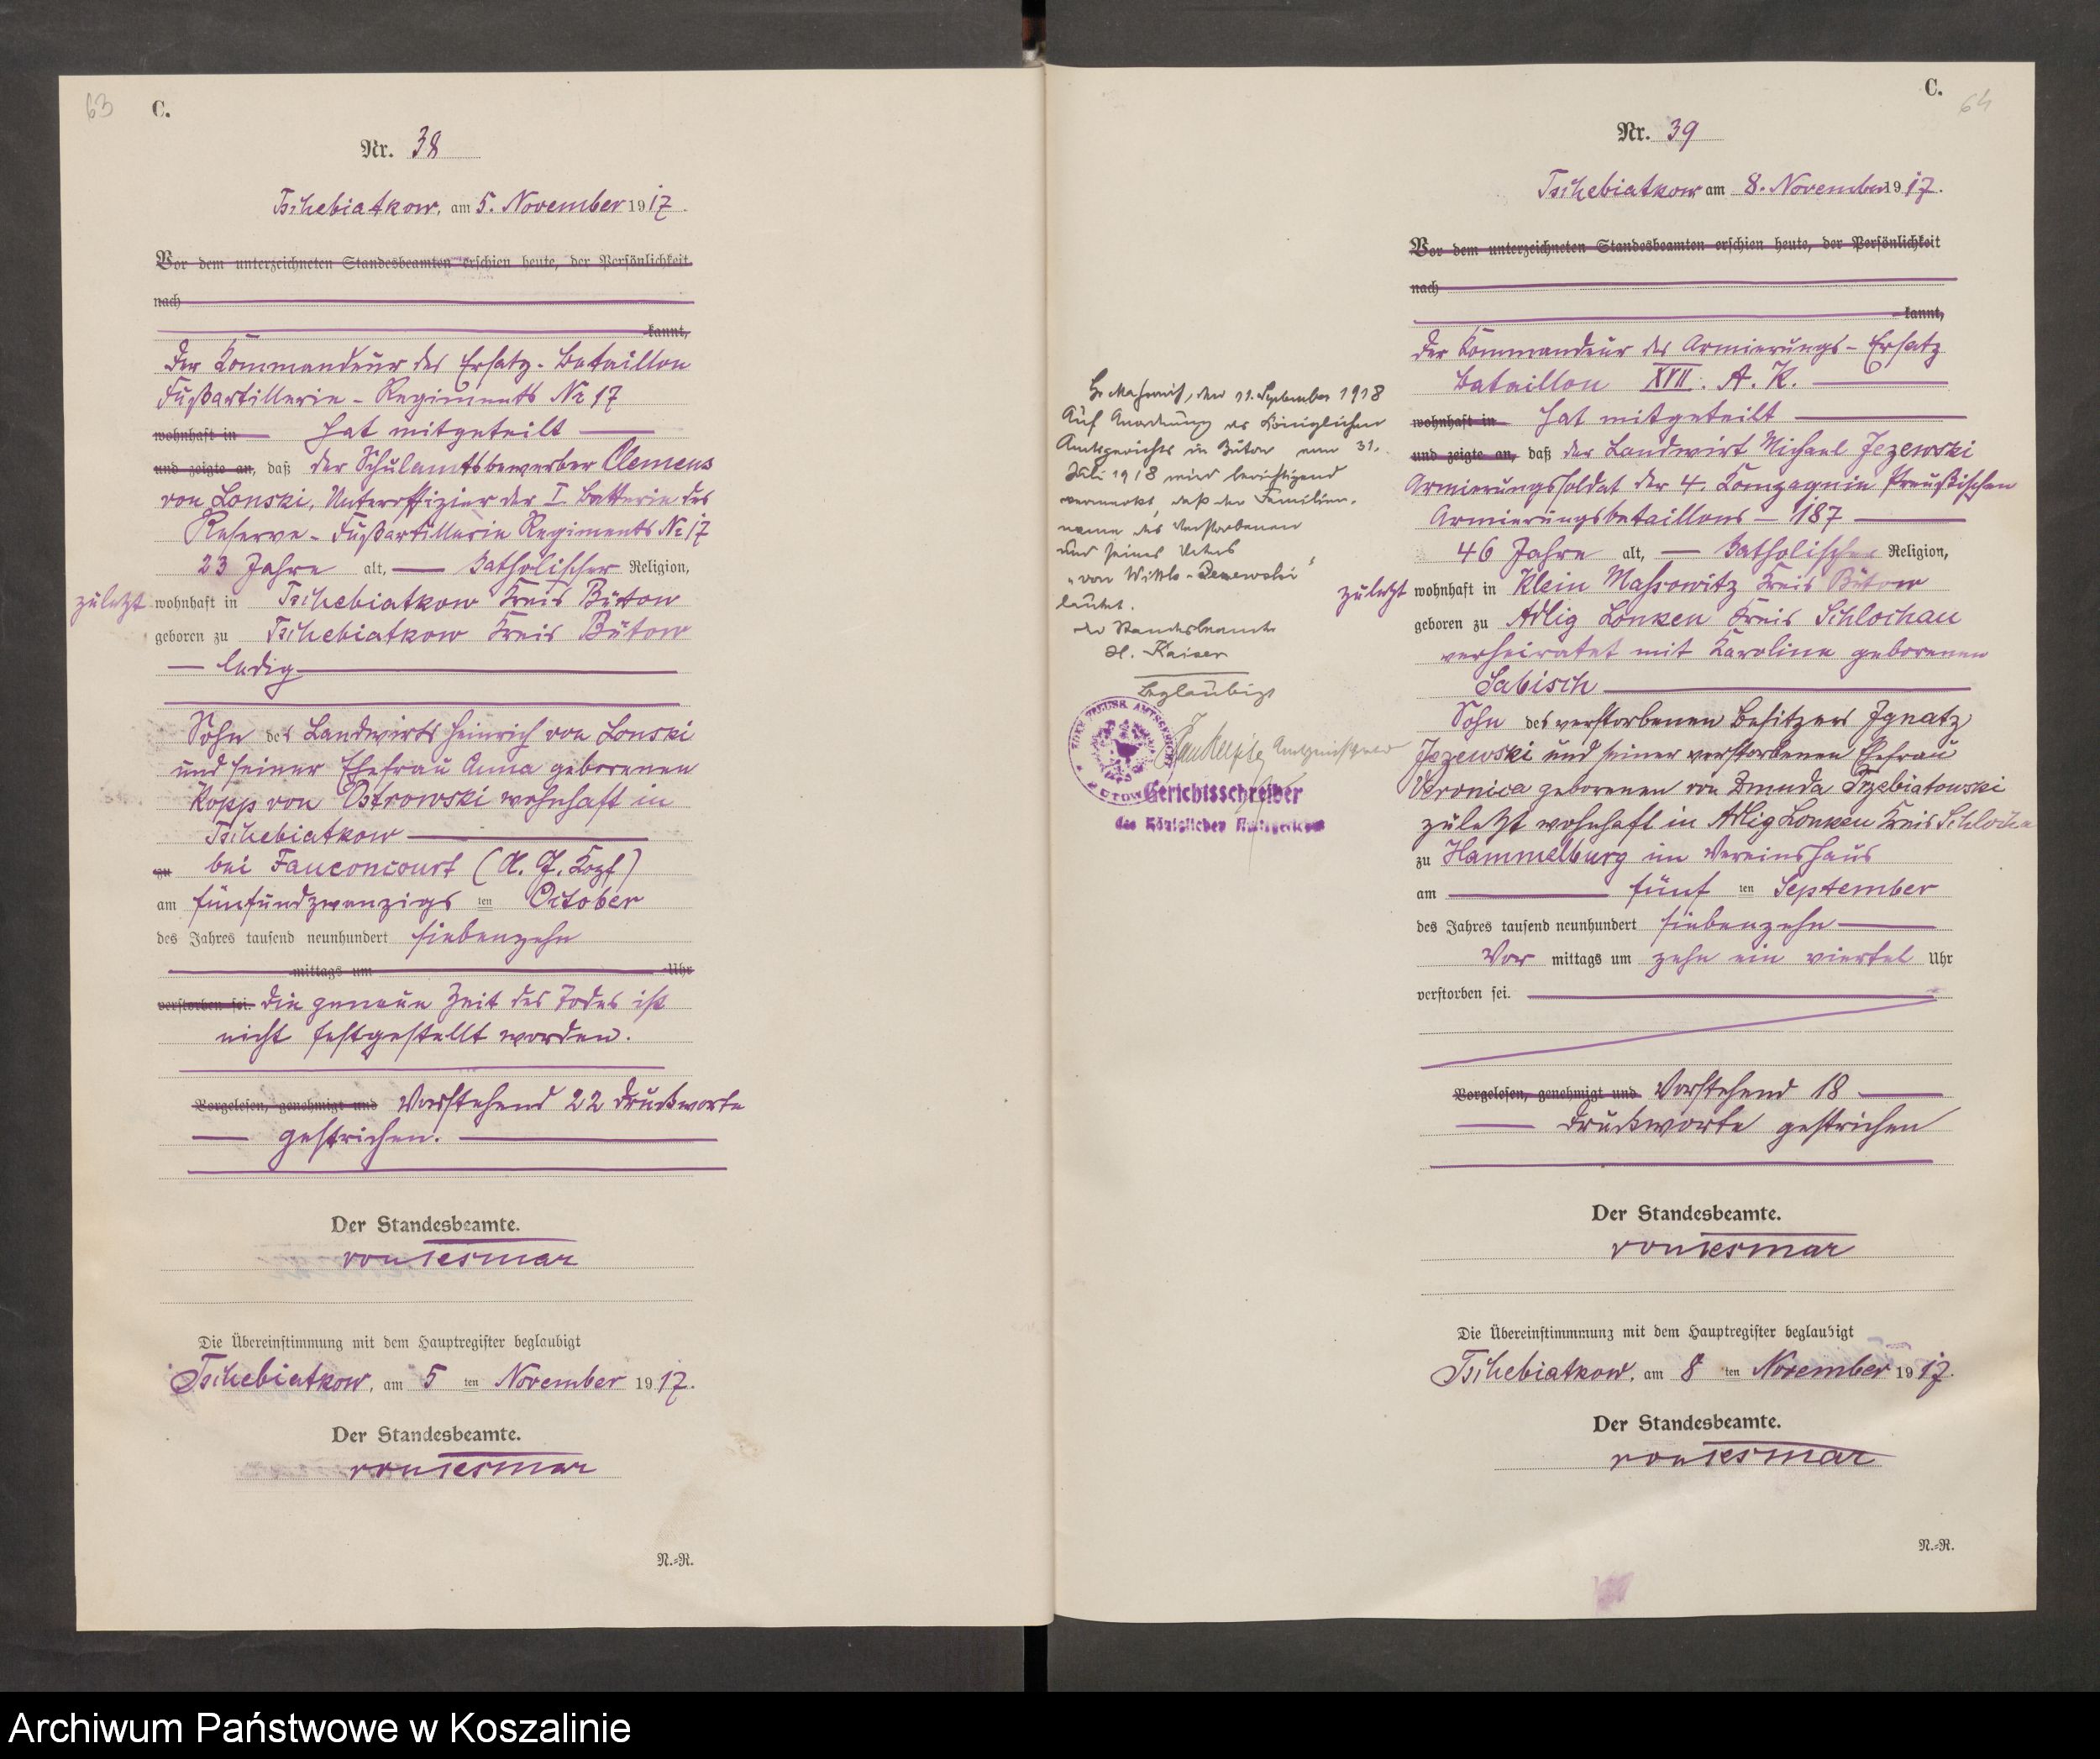 63
C.
Nr. 38
Tschebiatkow, am 5. November 1917.
Vor dem unterzeichneten Standesbeamten erschien heute, der Persönlichkeit
nach
kannt,
Der Kommandeur des Ersatz-Bataillon
Fußartillerie-Regiments No 17
wohnhaft in hat mitgeteilt
und zeigte an, daß der Schulamtsbewerber Clemens
von Lonski, Unteroffizier der I. Batterie des
Reserve-Fußartillerie Regiments No 17
23 Jahre alt, katholischer Religion,
zuletzt wohnhaft in Tschebiatkow Kreis Bütow
geboren zu Tschebiatkow Kreis Bütow
ledig
Sohn des Landwirts Heinrich von Lonski
und seiner Ehefrau Anna geborenen
Kopp von Ostrowski wohnhaft in
Tschebiatkow
zu bei Fauconcourt (A. J. Kopf)
am fünfundzwanzigs ten October
des Jahres tausend neunhundert siebenzehn
mittags um Uhr
verstorben sei. Die genaue Zeit des Todes ist
nicht festgestellt worden.
Vorgelesen, genehmigt und Vorstehend 22 Druckworte
gestrichen.
Der Standesbeamte.
von Tesmar
Die Übereinstimmung mit dem Hauptregister beglaubigt
Tschebiatkow, am 5 ten November 1917.
Der Standesbeamte.
von Tesmar
N.-R.
C.
64
Nr. 39
Tschebiatkow am 8. November 1917.
Vor dem unterzeichneten Standesbeamten erschien heute, der Persönlichkeit
nach
kannt,
Der Kommandeur des Armierungs-Ersatz
Bataillon XVII. A. K.
wohnhaft in hat mitgeteilt
und zeigte an, daß der Landwirt Michael Jezewski
Armierungssoldat der 4. Kompagnie Preußischen
Armierungsbataillons - 187
46 Jahre alt, katholischer Religion,
zuletzt wohnhaft in Klein Massowitz Kreis Bütow
geboren zu Adlig Lonken Kreis Schlochau
verheiratet mit Karoline geborenen
Sabisch
Sohn des verstorbenen Besitzers Ignatz
Jezewski und seiner verstorbenen Ehefrau
Veronica geborenen von Dmuda Trzebiatowski
zuletzt wohnhaft in Adlig Lonken Kreis Schlocha
zu Hammelburg im Vereinshaus
am fünf ten September
des Jahres tausend neunhundert siebenzehn
Vor mittags um zehn ein viertel Uhr
verstorben sei.
Vorgelesen, genehmigt und Vorstehend 18
Druckworte gestrichen
Der Standesbeamte.
von Tesmar
Die Übereinstimmung mit dem Hauptregister beglaubigt
Tschebiatkow, am 8 ten November 1917.
Der Standesbeamte.
von Tesmar
N.-R.
den 11. September 1918
Auf Anordnung des Königlichen
Amtsgerichts in Bütow vom 31.
Juli 1918 wird berichtigend
vermerkt, daß der Familien-
name des Verstorbenen
und seines Vaters
"von Wittke-Jezewski"
lautet.
Der Standesbeamte
H. Kaiser
Beglaubigt
Gerichtsschreiber
des Königlichen Amtsgerichts
Archiwum Państwowe w Koszalinie